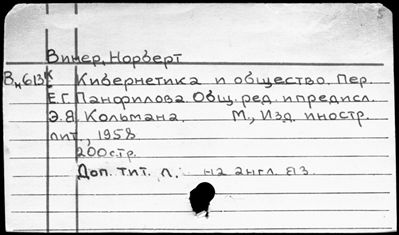 Винер, Норберт
Вн613 К Кибернетика и общество. Пер.
Е.Г. Панфилова. Общ. ред. и предисл.
Э.Я. Кольмана. М., Изд. иностр.
лит., 1958
200 стр.
Доп. тит. л. на англ. яз.